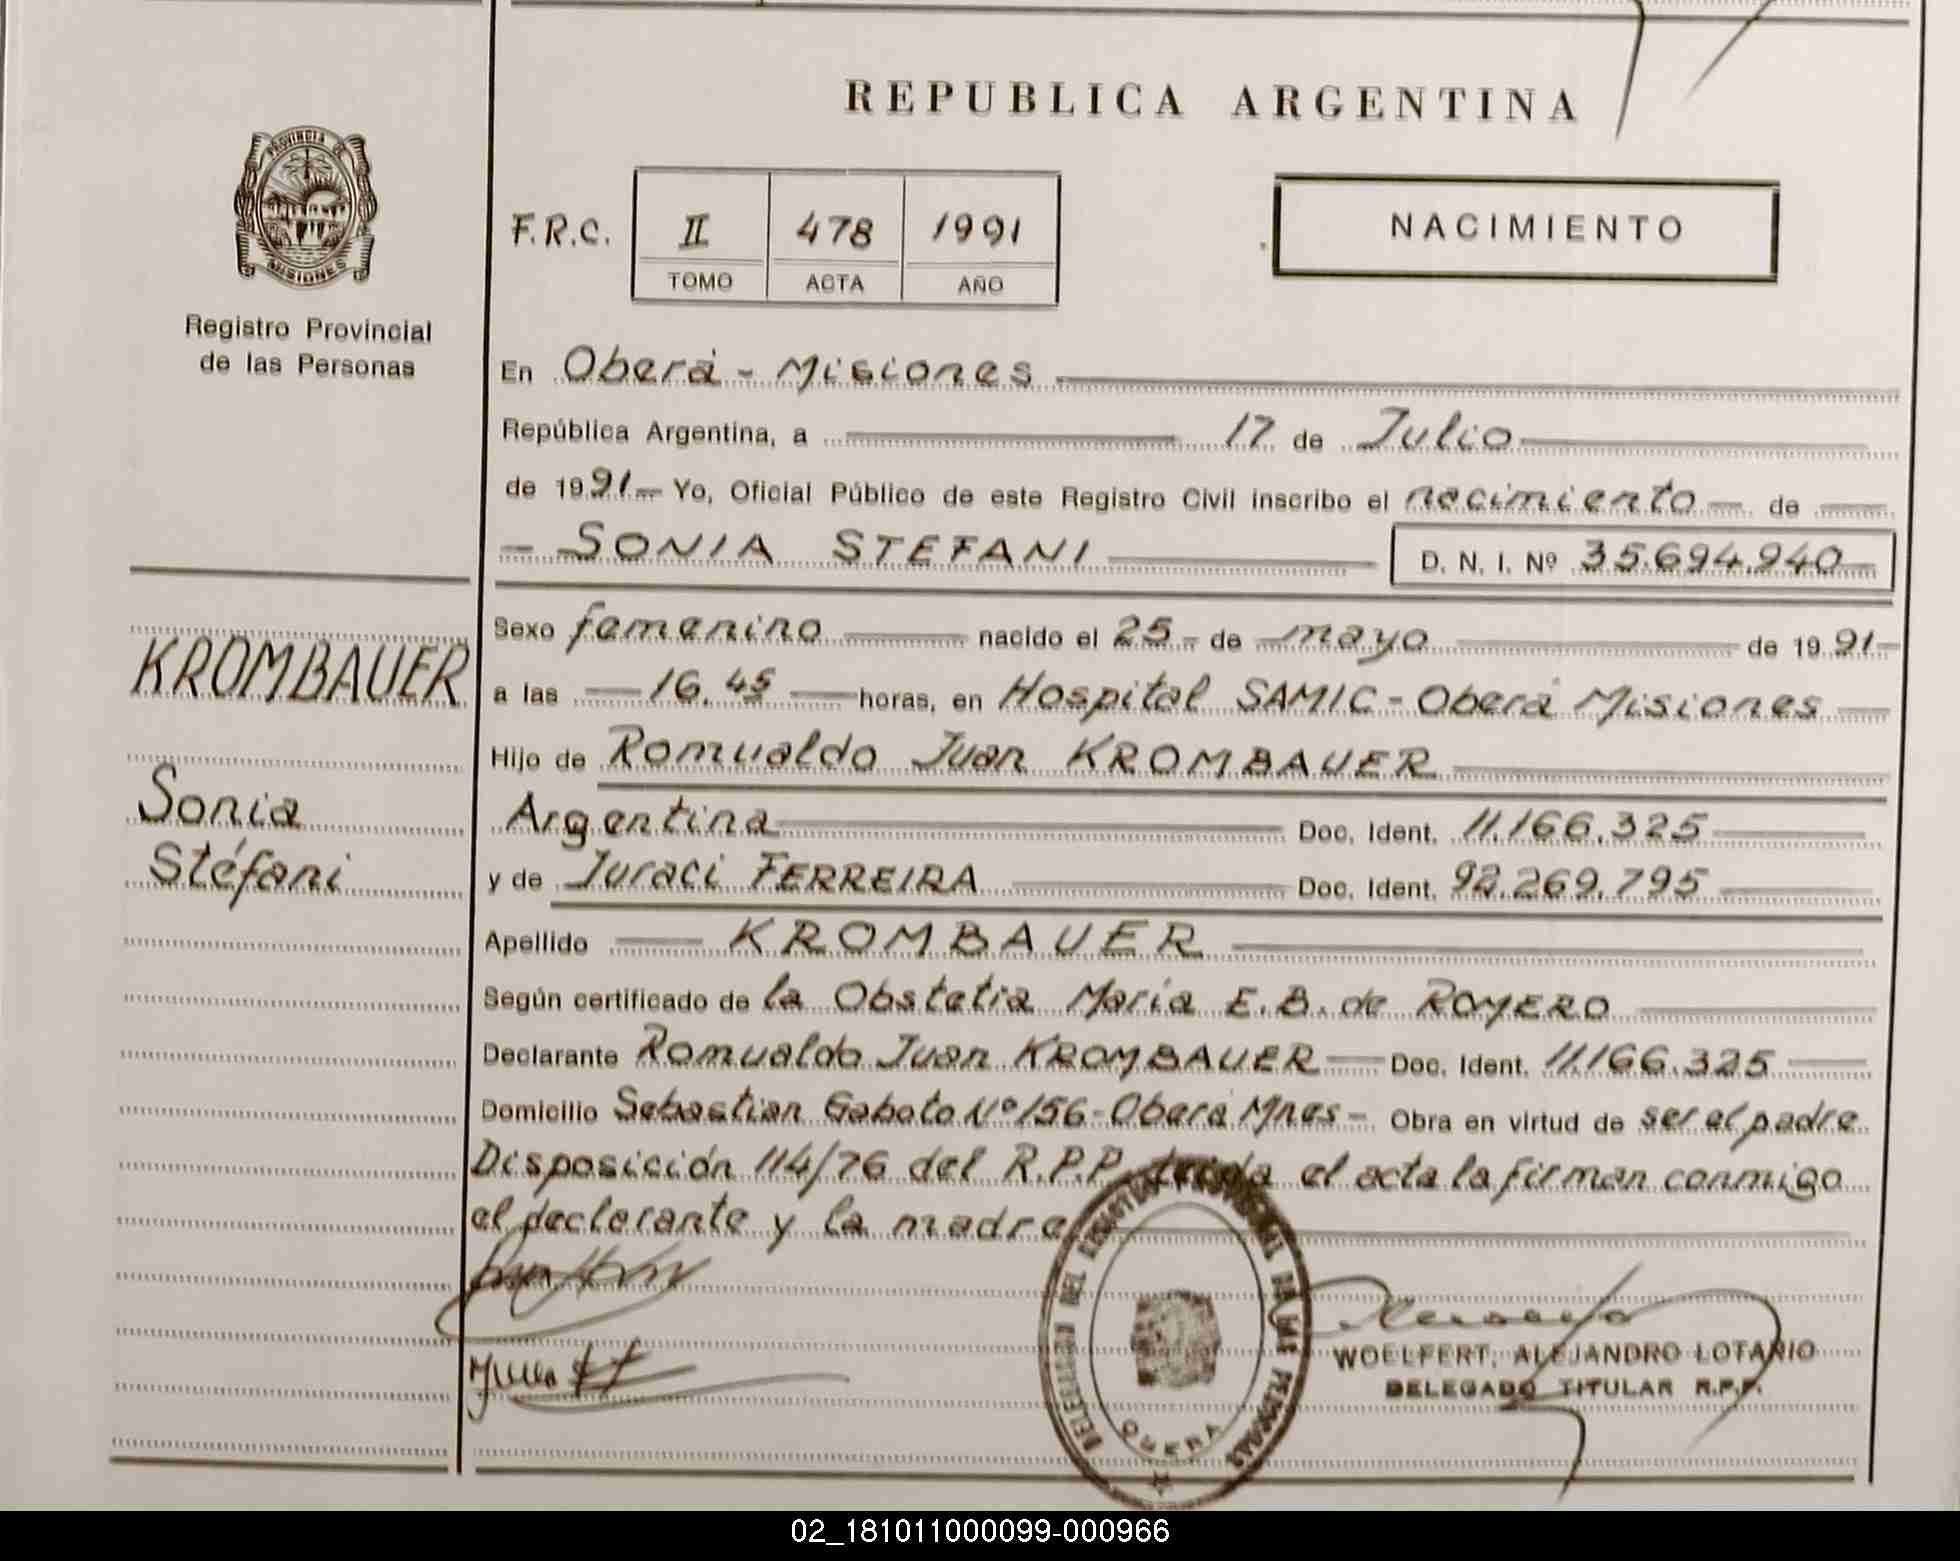 REPUBLICA ARGENTINA
PROVINCIA DE
MISIONES
Registro Provincial
de las Personas
F.R.C. II 478 1991
TOMO ACTA AÑO
NACIMIENTO
En Oberá - Misiones
República Argentina, a 17 de Julio
de 1991 Yo, Oficial Público de este Registro Civil inscribo el nacimiento de
SONIA STEFANI D. N. I. Nº 35.694.940
KROMBAUER
Sonia
Stéfani
Sexo femenino nacido el 25 de mayo de 1991
a las 16.45 horas, en Hospital SAMIC - Oberá Misiones
Hijo de Romualdo Juan KROMBAUER
Argentina Doc. Ident. 11.166.325
y de Juraci FERREIRA Doc. Ident. 92.269.795
Apellido KROMBAUER
Según certificado de la Obstetra María E. B. de ROMERO
Declarante Romualdo Juan KROMBAUER Doc. Ident. 11.166.325
Domicilio Sebastian Gaboto Nº 156 - Oberá Mnes - Obra en virtud de ser el padre
Disposición 114/76 del R.P.P. Leída el acta la firman conmigo
el declarante y la madre
DELEGACION DEL REGISTRO PROVINCIAL DE LAS PERSONAS
OBERA
WOELFERT, ALEJANDRO LOTARIO
DELEGADO TITULAR R.P.P.
02_181011000099-000966